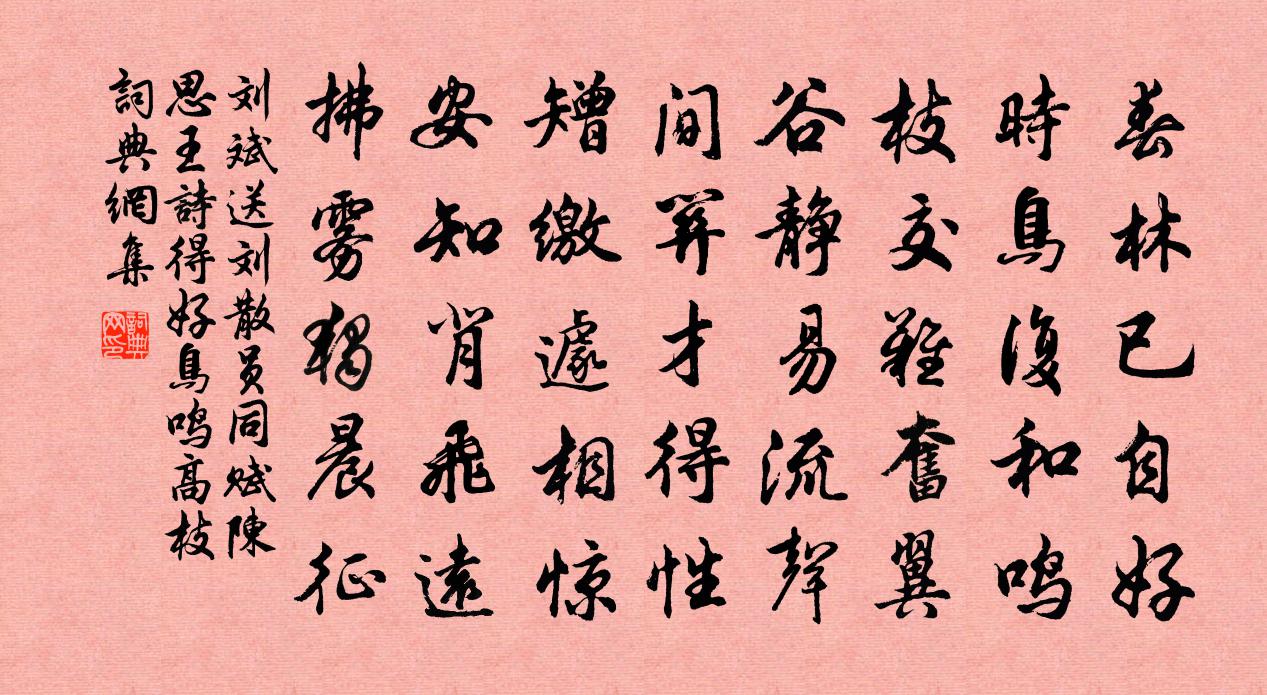 春林已自好
時鳥復和鸣
枝交難奮翼
谷静易流聲
间關才得性
矰繳遽相惊
安知背飛遠
拂雾獨晨征
刘斌送刘散员同赋陳
思王詩得好鳥鸣高枝
詞典網集
詞典网印